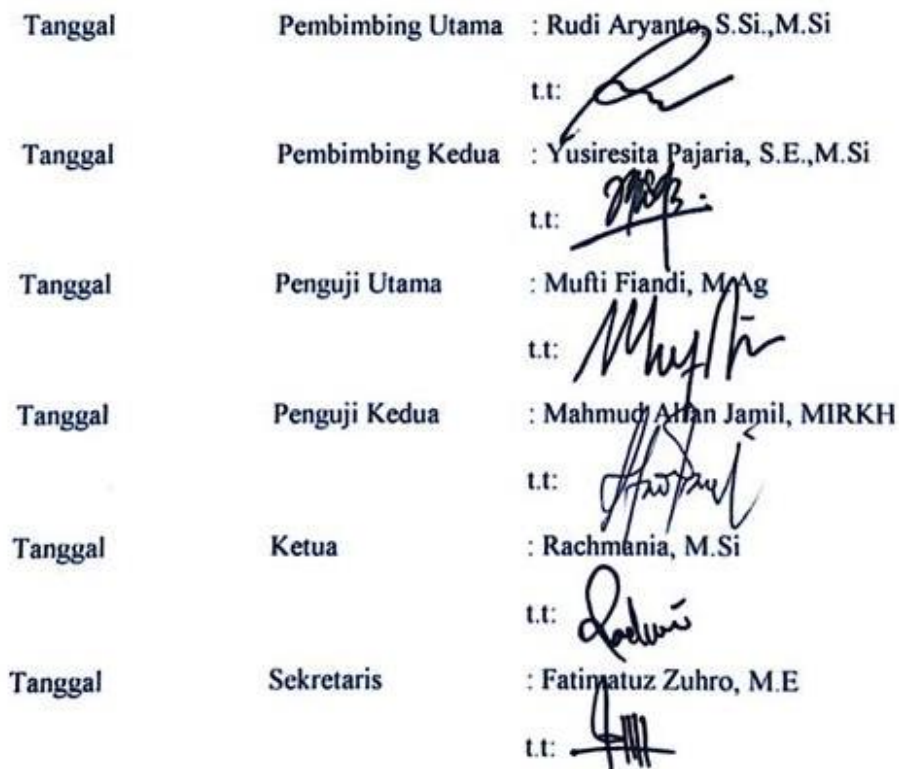 Tanggal Pembimbing Utama : Rudi Aryanto, S.Si.,M.Si
t.t:
Tanggal Pembimbing Kedua : Yusiresita Pajaria, S.E.,M.Si
t.t:
Tanggal Penguji Utama : Mufti Fiandi, M.Ag
t.t:
Tanggal Penguji Kedua : Mahmud Alfan Jamil, MIRKH
t.t:
Tanggal Ketua : Rachmania, M.Si
t.t:
Tanggal Sekretaris : Fatimatuz Zuhro, M.E
t.t: